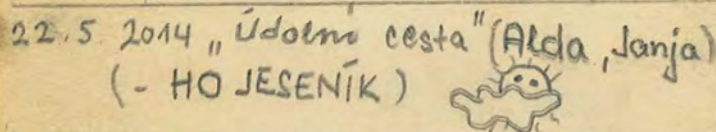 22.5. 2014 „Údolní cesta" (Alda, Janja)
(- HO JESENÍK)